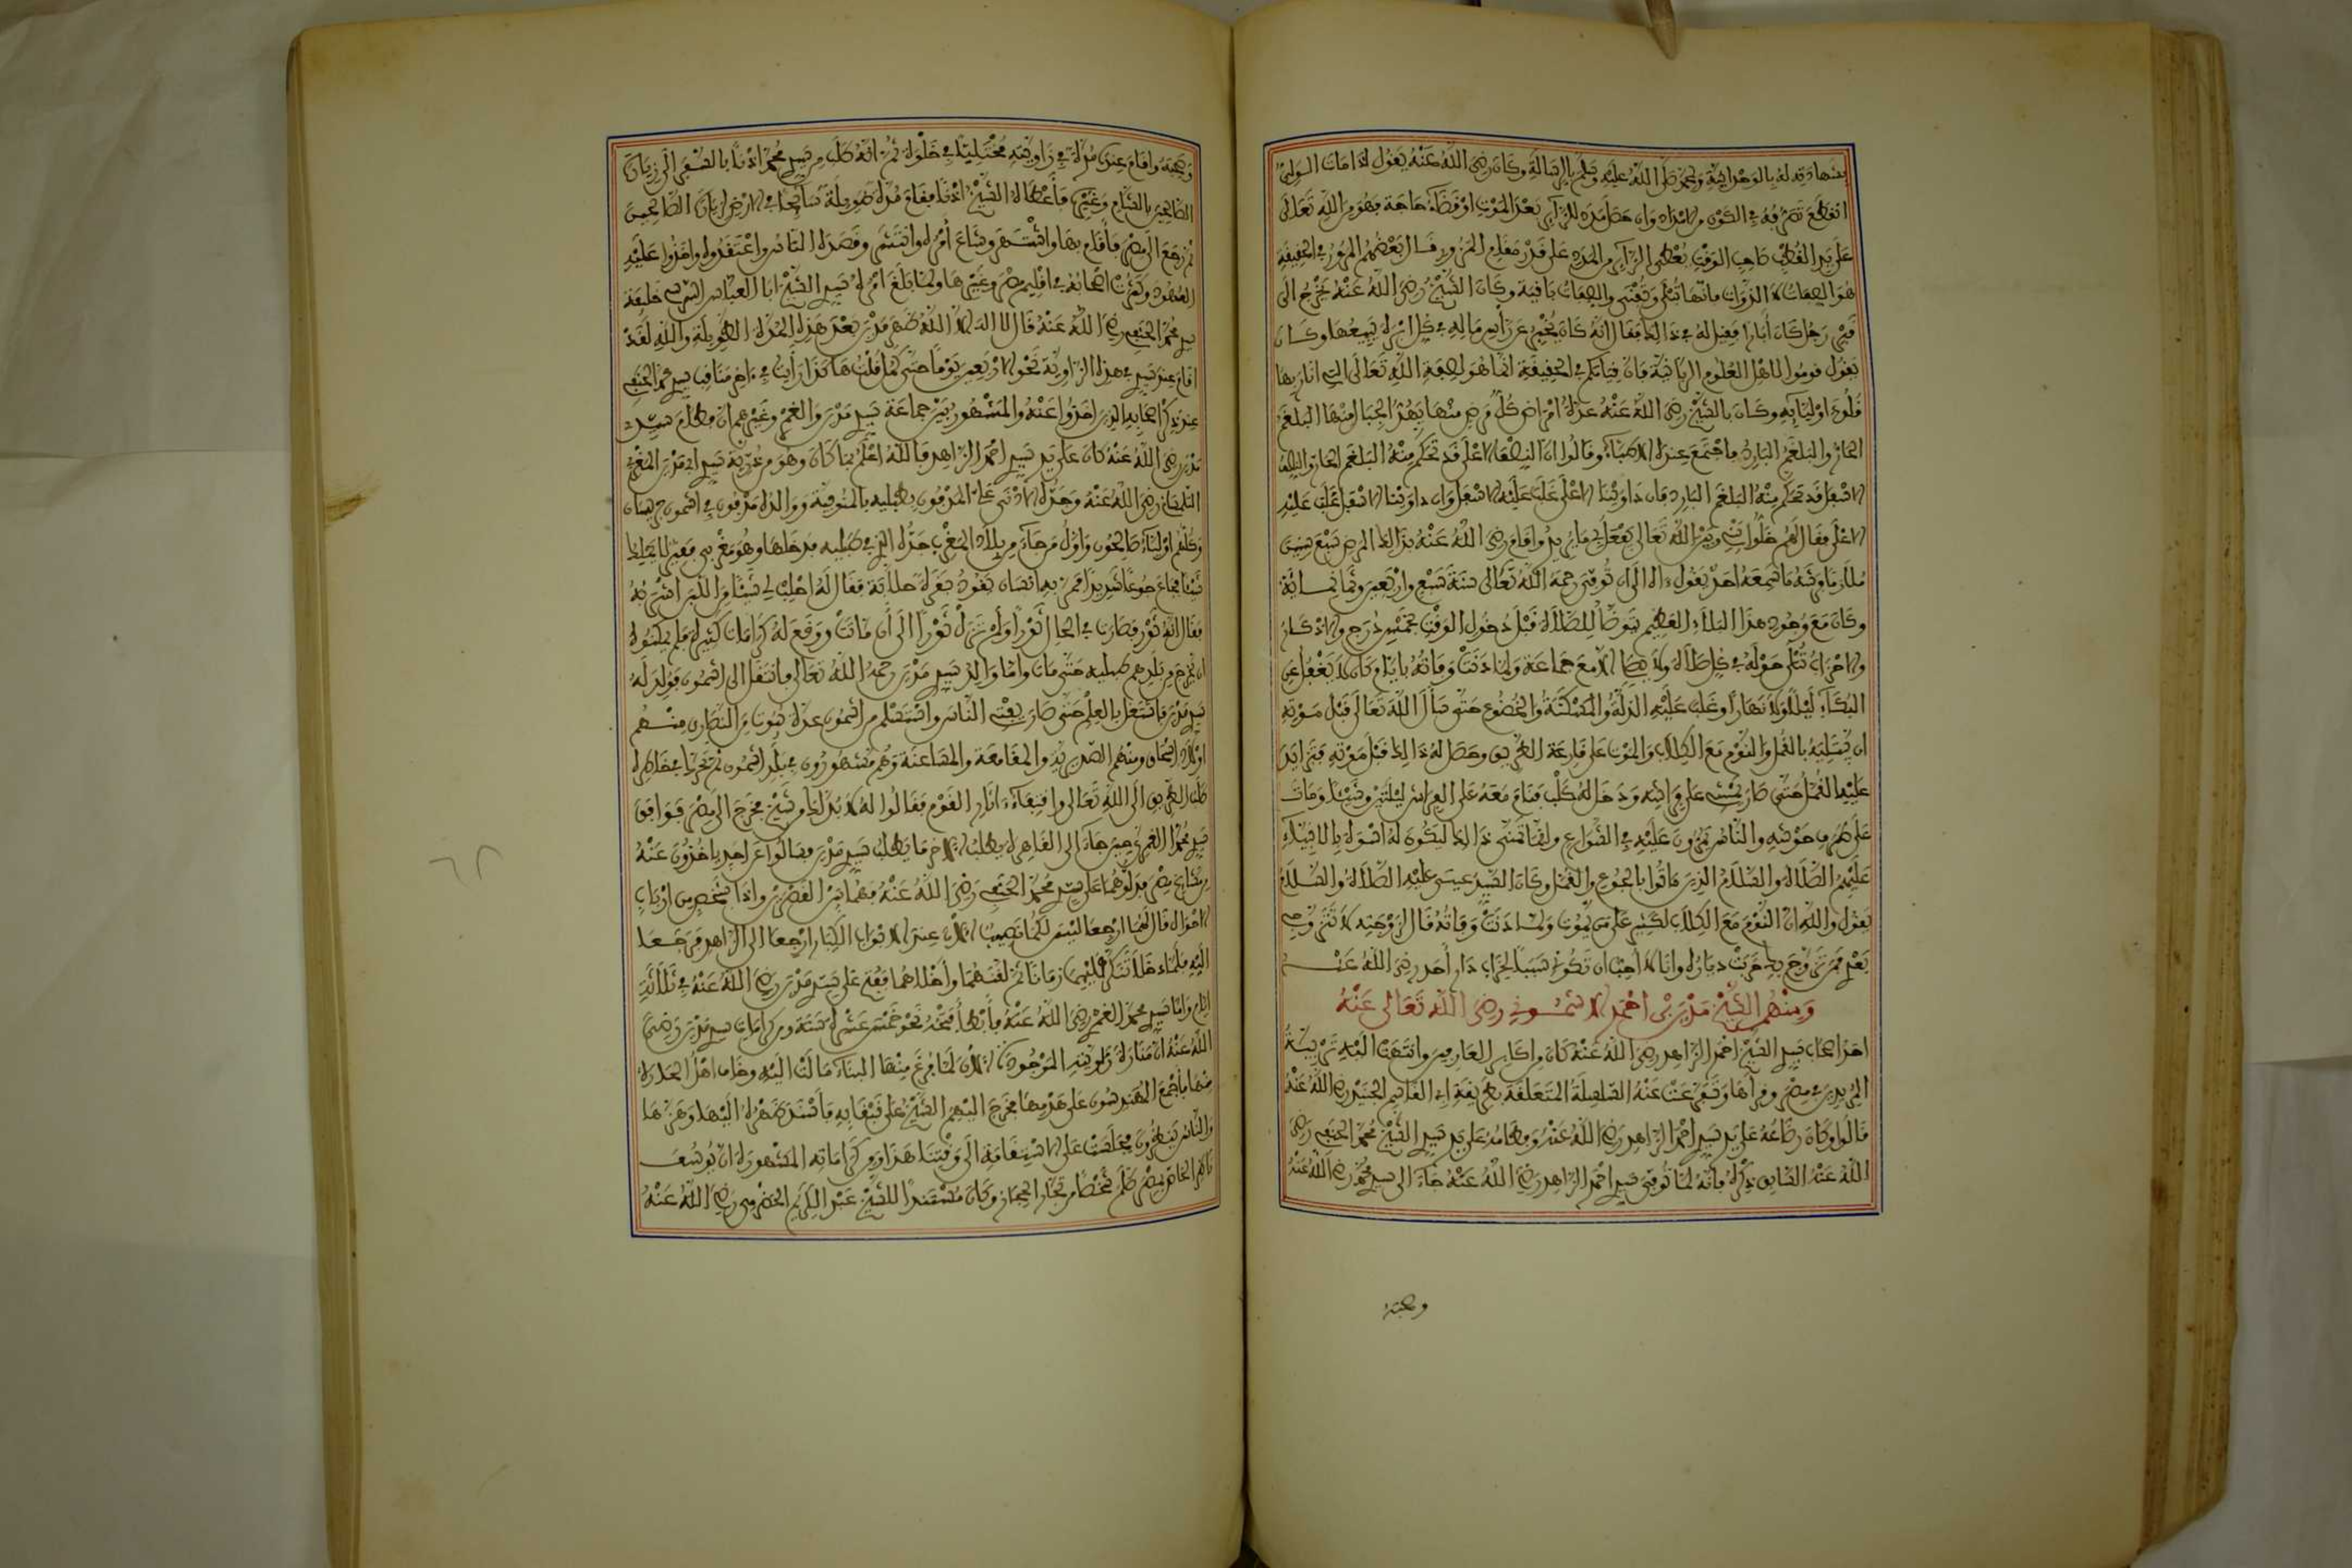 يشهد له بالوحدانية ولمحمد صلى الله عليه وسلم بالرسالة وكان رضي الله عنه يقول إذا مات الولي
انقطع تصرفه في الكون من الامداد وان حصل مدد للزائر بعد الموت او قضاء حاجة فهو من الله تعالى
على يد القطب صاحب الوقت يعطي الزائر من المدد على قدر مقام المزور وقال بعضهم المزور في الحقيقة
هو الصفات لا الذوات فانها تبلى وتفنى والصفات باقية وكان الشيخ رضي الله عنه يخرج الى
يقول قوموا لاهل العلوم الربانية فان قيامكم في الحقيقة انما هو لصفة الله تعالى التي انار بها
قلوب اوليائه وكان بالشيخ رضي الله عنه عدة امراض كل مرض منها يهد الجبال منها البلغم
الحار والبلغم البارد فاجتمع عنده الاطباء وقالوا ان النصف الاعلى قد تحكم منه البلغم الحار والنصف
الاسفل قد تحكم منه البلغم البارد فان داوينا الاعلى غلب عليه الاسفل وان داوينا الاسفل غلب عليه
الاعلى فقال لهم خلوا بيني وبين الله تعالى يفعل بي ما يريد واقام رضي الله عنه بذالك المرض سبع سنين
ملازما فرشه ما سمعه احد يقول اه الى ان توفي رحمه الله تعالى سنة سبع واربعين وثمانمائة
وكان مع وجود هذا البلاء العظيم يتوضأ للصلاة قبل دخول الوقت بخمس درج والاذكار
والاحزاب تتلى حوله في كل صلاة ولا يصلي الا مع جماعة ولما دنت وفاته بايام كان لا يغفل عن
البكاء ليلا ولا نهارا وغلب عليه الذلة والمسكنة والخضوع حتى سأل الله تعالى قبل موته
ان يبتليه بالقمل والنوم مع الكلاب والموت على قارعة الطريق وحصل له ذالك قبل موته فتزايد
عليه القمل حتى صار يمشي على فراشه ودخل له كلب فنام معه على الفراش ليلتين وشيئا ومات
على طرف حوشه والناس يمرون عليه في الشوارع وانما تمنى ذالك ليكون له اسوة بالانبياء
عليهم الصلاة والسلام الذين ماتوا بالجوع والقمل وكان السيد عيسى عليه الصلاة والسلام
يقول والله ان النوم مع الكلاب لكثير على من يموت ولما دنت وفاته قال لزوجته لا تتزوجي
بعدي فمن تزوج بك خربت دياره وانا لا احب ان تكوني سببا لخراب دار احد رضي الله عنه
ومنهم الشيخ مدين بن احمد الاشموني رضي الله تعالى عنه
احد اصحاب سيدي الشيخ احمد الزاهد رضي الله عنه كان من اكابر العارفين وانتهت اليه تربية
المريدين في مصر وقراها وتفرعت عنه السلسلة المتعلقة بطريقة ابي القاسم الجنيد رضي الله عنه
قالوا وكان رضاعه على يد سيدي احمد الزاهد رضي الله عنه وفطامه على يد سيدي الشيخ محمد الحنفي رضي
الله عنه السابق ذكره فانه لما توفي سيدي احمد الزاهد رضي الله عنه جاء الى سيدي محمد رضي الله عنه
وصحبه
وصحبه واقام عنده مدة في زاويته مختليا في خلوة ثم انه طلب من سيدي محمد اذنا بالسفر الى زيارة
الصالحين بالشام وغيره فأعطاه الشيخ اذنا فقام مدة طويلة سائحا في الارض لزيارة الصالحين
ثم رجع الى مصر فأقام بها واشتهر وشاع أمره وانتشر وقصده الناس واعتقدوه واخذوا عليه
العهود وكثرت اصحابه في اقليم مصر وغيرها ولما بلغ امره سيدي الشيخ ابا العباس السرسي خليفة
سيدي محمد الحنفي رضي الله عنه قال لا اله الا الله ظهر مدين بعد هذه المدة الطويلة والله لقد
اقام عند سيدي في هذه الزاوية نحو الاربعين يوما حتى كمل قلت هكذا رأيت في اخر مناقب سيدي محمد الحنفي
عند ذكر اصحابه الذين اخذوا عنه والمشهور بين جماعة سيدي مدين والغمري وغيرهم ان فطام سيدي
مدين رضي الله عنه كان على يد سيدي احمد الزاهد فالله اعلم بما كان وهو من ذرية سيدي ابي مدين المغربي
التلمساني رضي الله عنه وجده الادنى علي المدفون بطبليه بالمنوفية ووالده مدفون في اشمون جريسان
وكلهم اولياء صالحون واول من جاء من بلاد المغرب جده الذي في طبليه فدخلها وهو مغربي فقير لا يملك
شيئا فجاع جوعا شديدا فمر به انسان يقود بقرة حلابة فقال له احلب لي شيئا من اللبن اشربه
فقال انه ثور فصارت في الحال ثورا ولم تزل ثورا الى أن ماتت ووقع له كرامات كثيرة فلم يمكنوه
ان يخرج من بلدهم طبليه حتى مات واما والد سيدي مدين رحمه الله تعالى فانتقل الى اشمون فولد له
سيدي مدين فاشتغل بالعلم حتى صار يفتي الناس واستسلم من اشمون عدة بيوت من النصارى منهم
اولاد اسحاق ومنهم الصديرية والمقامعة والمساعنة وهم مشهورون في بلد اشمون ثم تحرك في خاطره
طلب الطريق الى الله تعالى واقتفاء اثار القوم فقالوا له لا بد لك من شيخ فخرج الى مصر فوافق
سيدي محمد الغمري حين جاء الى القاهرة يطلب الاخر ما يطلب سيدي مدين فسألوا عن احد ياخذون عنه
من مشايخ مصر فدلوهما على سيدي محمد الحنفي رضي الله عنه فهما بين القصرين واذا بشخص من ارباب
الاحوال قال لهما ارجعا ليس لكما نصيب الان عند الابواب الكبار ارجعا الى الزاهد فرجعا
اليه فلما دخلا تنكر عليهما زمانا ثم لقنهما وأخلاهما ففتح على سيدي مدين رضي الله عنه في ثلاثة
ايام واما سيدي محمد الغمري رضي الله عنه فأبطأ فتحه نحو خمس عشرة سنة ومن كرامات سيدي مدين رضي
الله عنه ان منارة زاويته الموجودة الان لما فرغ منها البناء مالت اليه وخاف اهل الحارة
منها فأجمع المهندسون على هدمها فخرج اليهم الشيخ على قبقابه فأسند ظهره اليها وهزها
والناس ينظرون فجلست على الاستقامة الى وقتنا هذا ومن كراماته المشهورة ان يوسف
ناظر الخاص بمصر ظلم شخصا من تجار الحجاز وكان مستندا للشيخ عبد الكريم الحضرمي رضي الله عنه